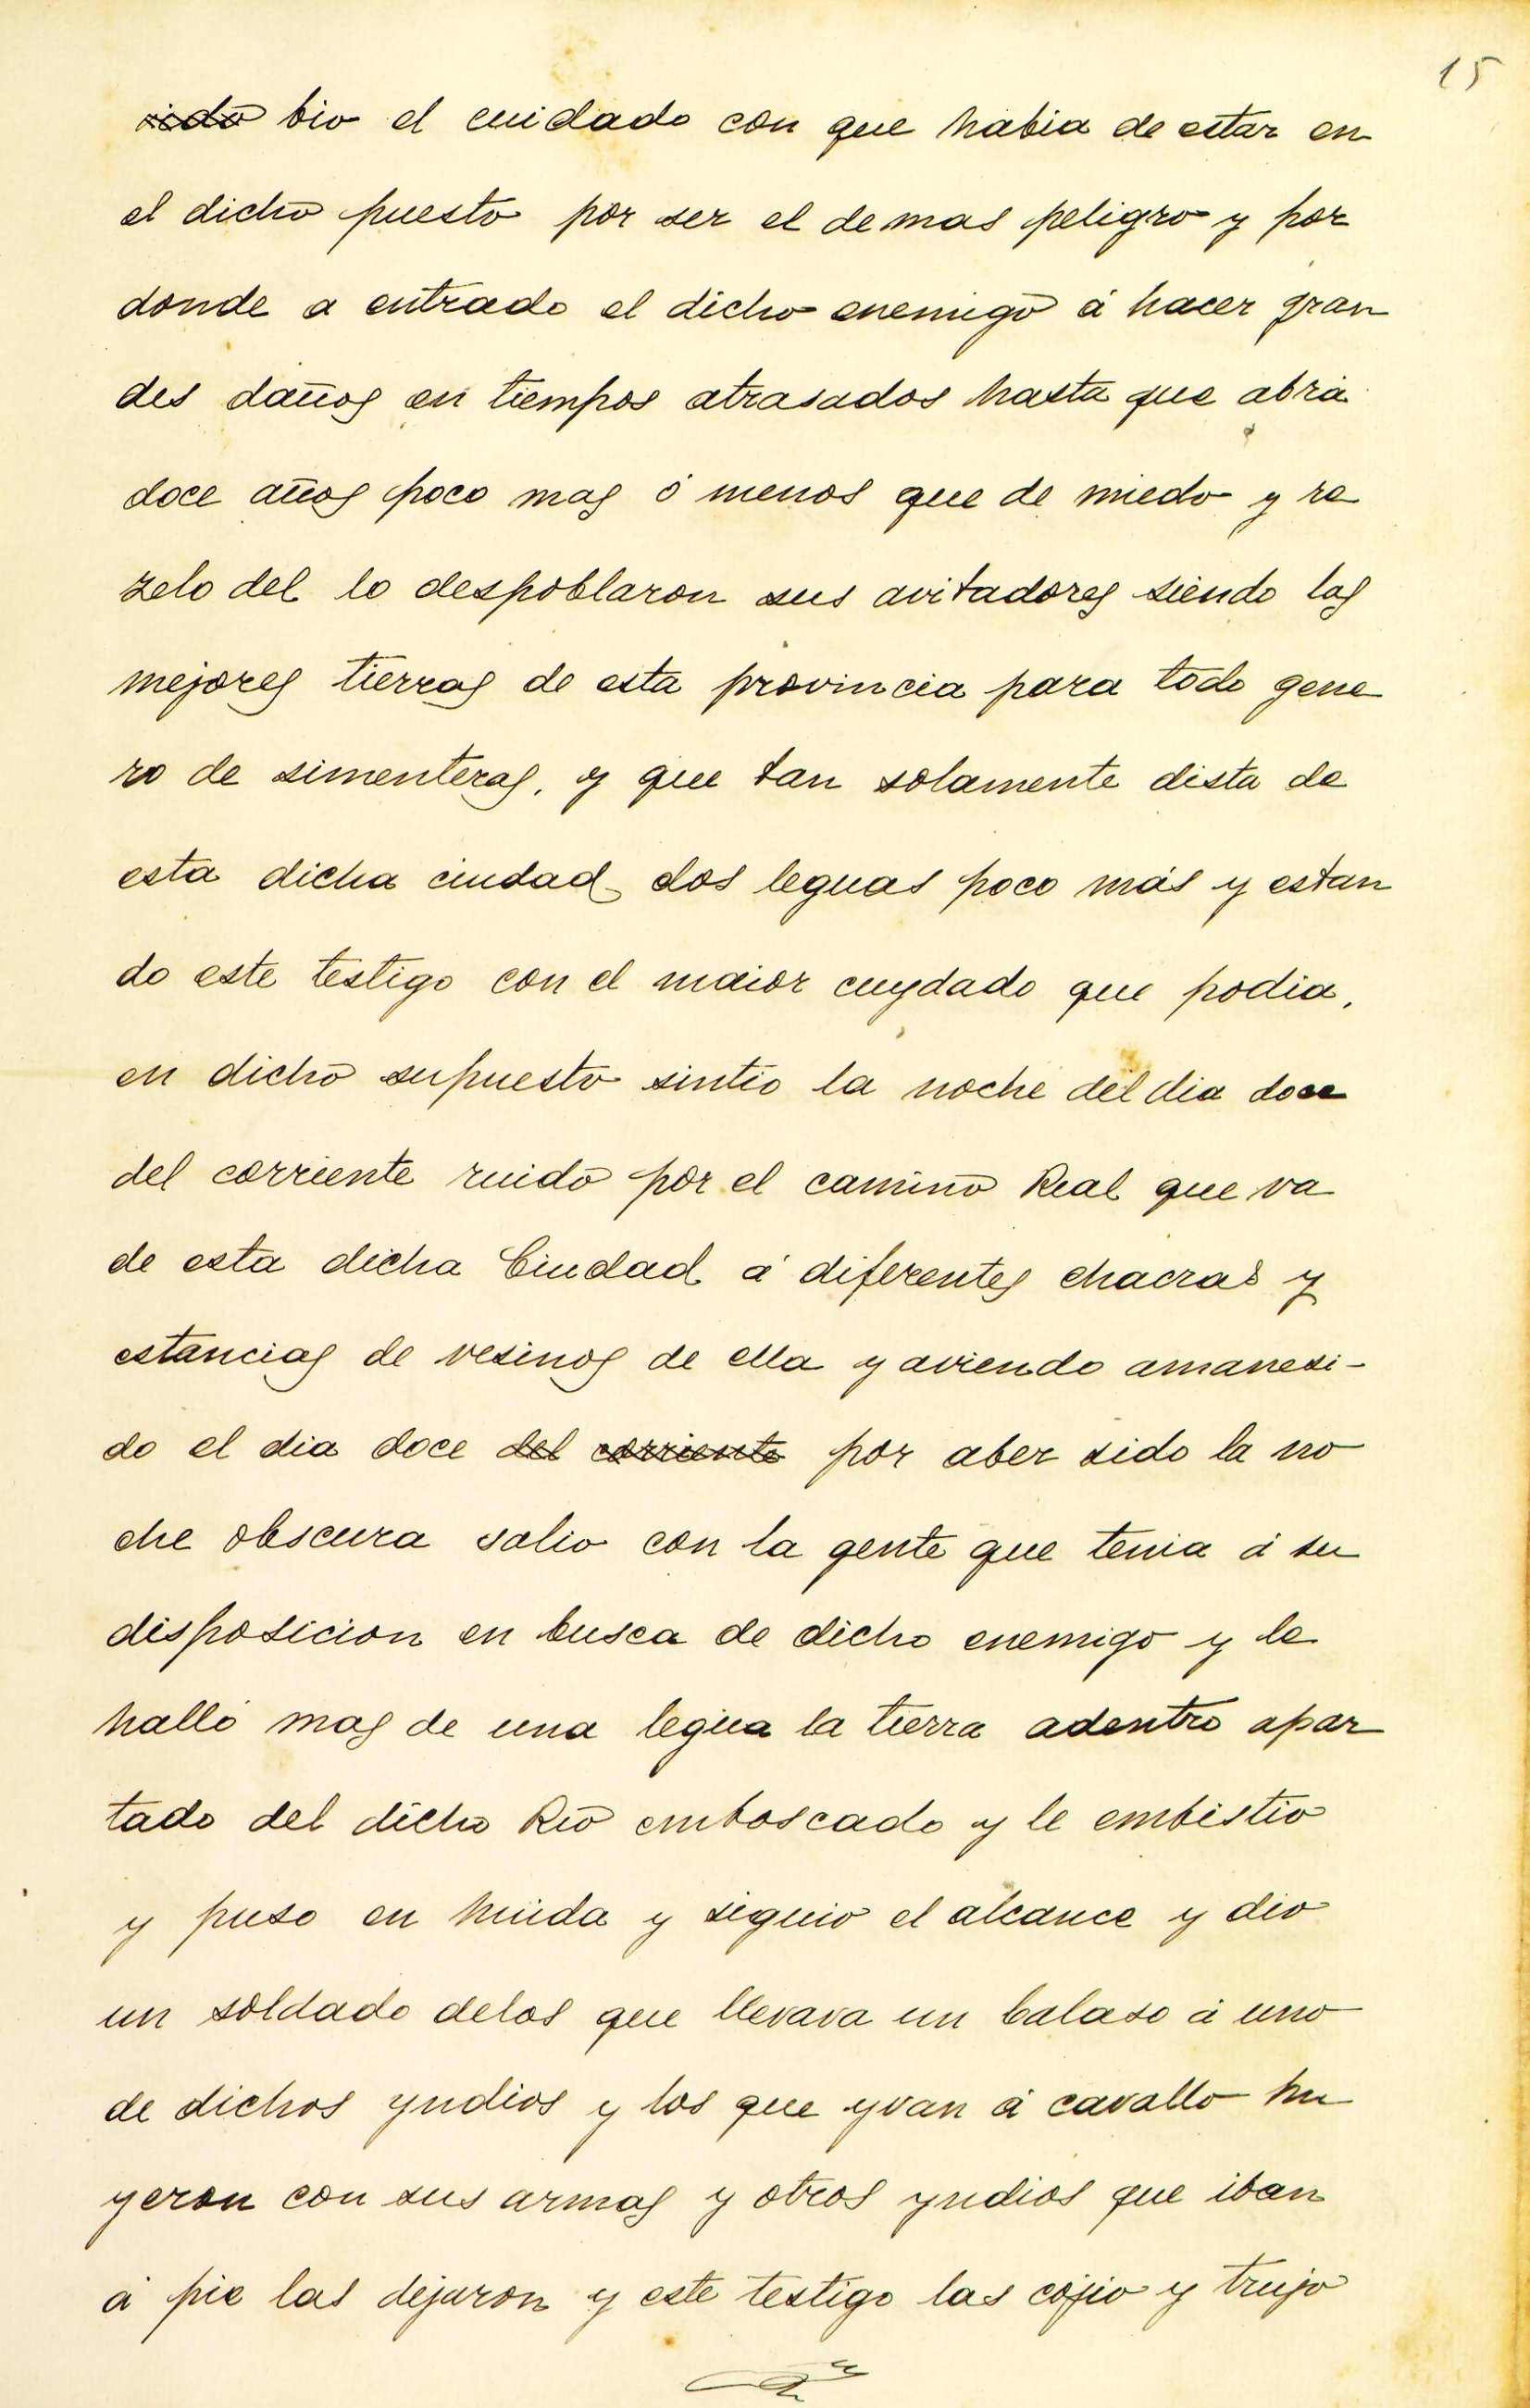 15
bio el cuidado con que habia de estar en
el dicho puesto por ser el de mas peligro y por
donde a entrado el dicho enemigo á hacer gran
des daños en tiempos atrasados hasta que abrá
doce años poco mas ó menos que de miedo y re
zelo del lo despoblaron sus avitadores siendo las
mejores tierras de esta provincia para todo gene
ro de simenteras, y que tan solamente dista de
esta dicha ciudad dos leguas poco más y estan
do este testigo con el maior cuydado que podia,
en dicho supuesto sintio la noche del dia doce
del corriente ruido por el camino Real que va
de esta dicha Ciudad á diferentes chacras y
estancias de vesinos de ella y aviendo amanesi-
do el dia doce del corriente por aber sido la no
che obscura salio con la gente que tenia á su
disposicion en busca de dicho enemigo y le
halló mas de una legua la tierra adentro apar
tado del dicho Rio emboscado y le embistio
y puso en huida y siguio el alcance y dio
un soldado delos que llevava un balaso á uno
de dichos yndios y los que yvan á cavallo hu
yeron con sus armas y otros yndios que iban
á pie las dejaron y este testigo las cojio y trujo